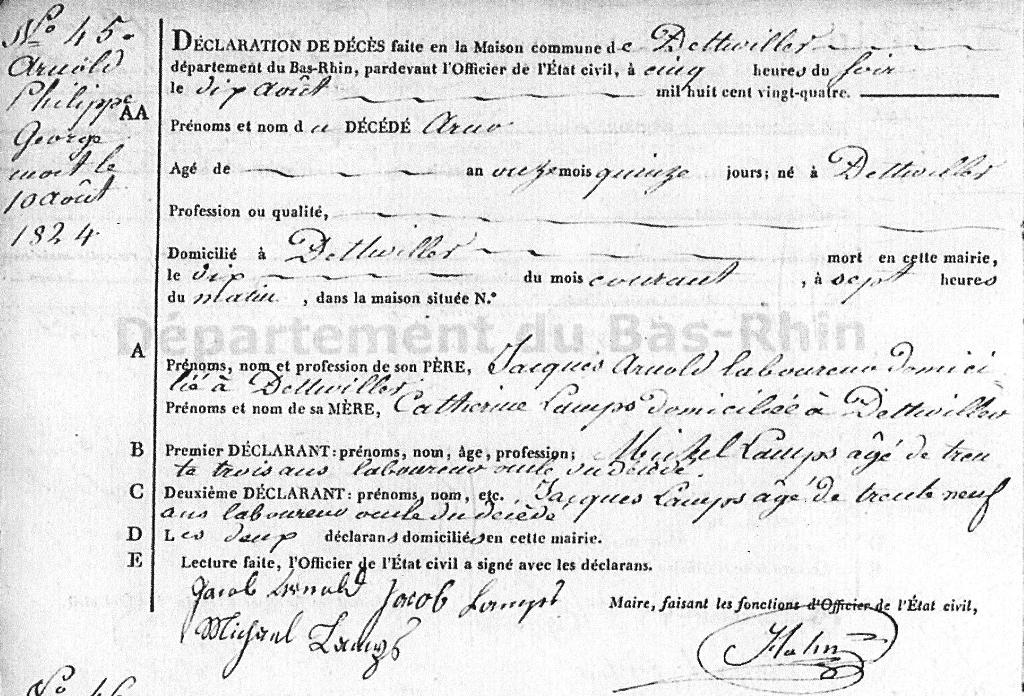 No 45.
Arnold
Philippe
George
mort le
10 août
1824
AA
DÉCLARATION DE DÉCÈS faite en la Maison commune de Dettwiller
département du Bas-Rhin, pardevant l'Officier de l'État civil, à cinq heures du soir
le dix août mil huit cent vingt-quatre.
Prénoms et nom du DÉCÉDÉ Arno
Agé de an onze mois quinze jours; né à Dettwiller
Profession ou qualité,
Domicilié à Dettwiller mort en cette mairie,
le dix du mois courant, à sept heures
du matin, dans la maison située N.º
Département du Bas-Rhin
A
Prénoms, nom et profession de son PÈRE, Jacques Arnold laboureur domici
lié à Dettwiller
Prénoms et nom de sa MÈRE, Catherine Lamps domiciliée à Dettwiller
B Premier DÉCLARANT: prénoms, nom, âge, profession; Michel Lamps âgé de tren
te trois ans laboureur oncle du décédé.
C Deuxième DÉCLARANT: prénoms, nom, etc. Jacques Lamps âgé de trente neuf
ans laboureur oncle du décédé
D Les deux déclarans domiciliés en cette mairie.
E Lecture faite, l'Officier de l'État civil a signé avec les déclarans.
Jacob Arnold Jacob Lamps
Maire, faisant les fonctions d'Officier de l'État civil,
Michael Lamps
No 46